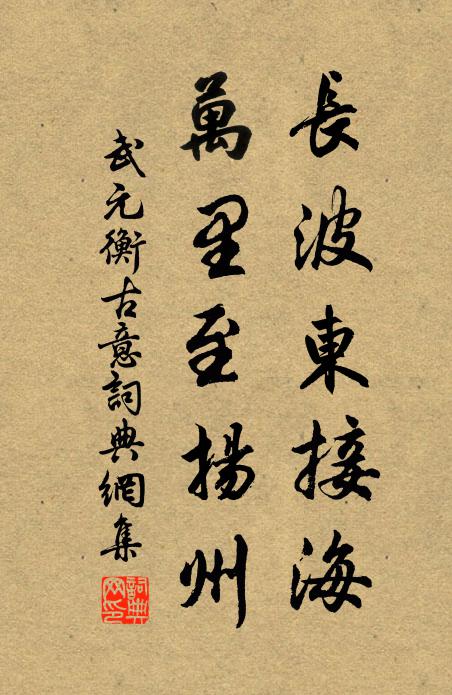 長波東接海
萬里至揚州
武元衡古意詞典網集
詞典網印